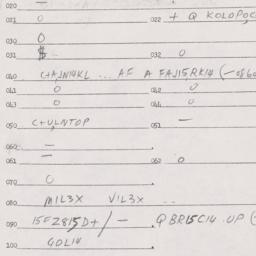 020 —
021 0 022 + Q KOLOPOK
030 0
031 $ 032 0
040 C+AJN14KL ... AF A FAJ15,RK14 (-0860
041 0 042 0
043 0 044 0
050 C+ULNTOP 051 —
060 —
061 — 062 0
070 0
080 MIL3X VIL3X ..
090 15FZ815D+/— QBR15C14 UP (
100 GOL14